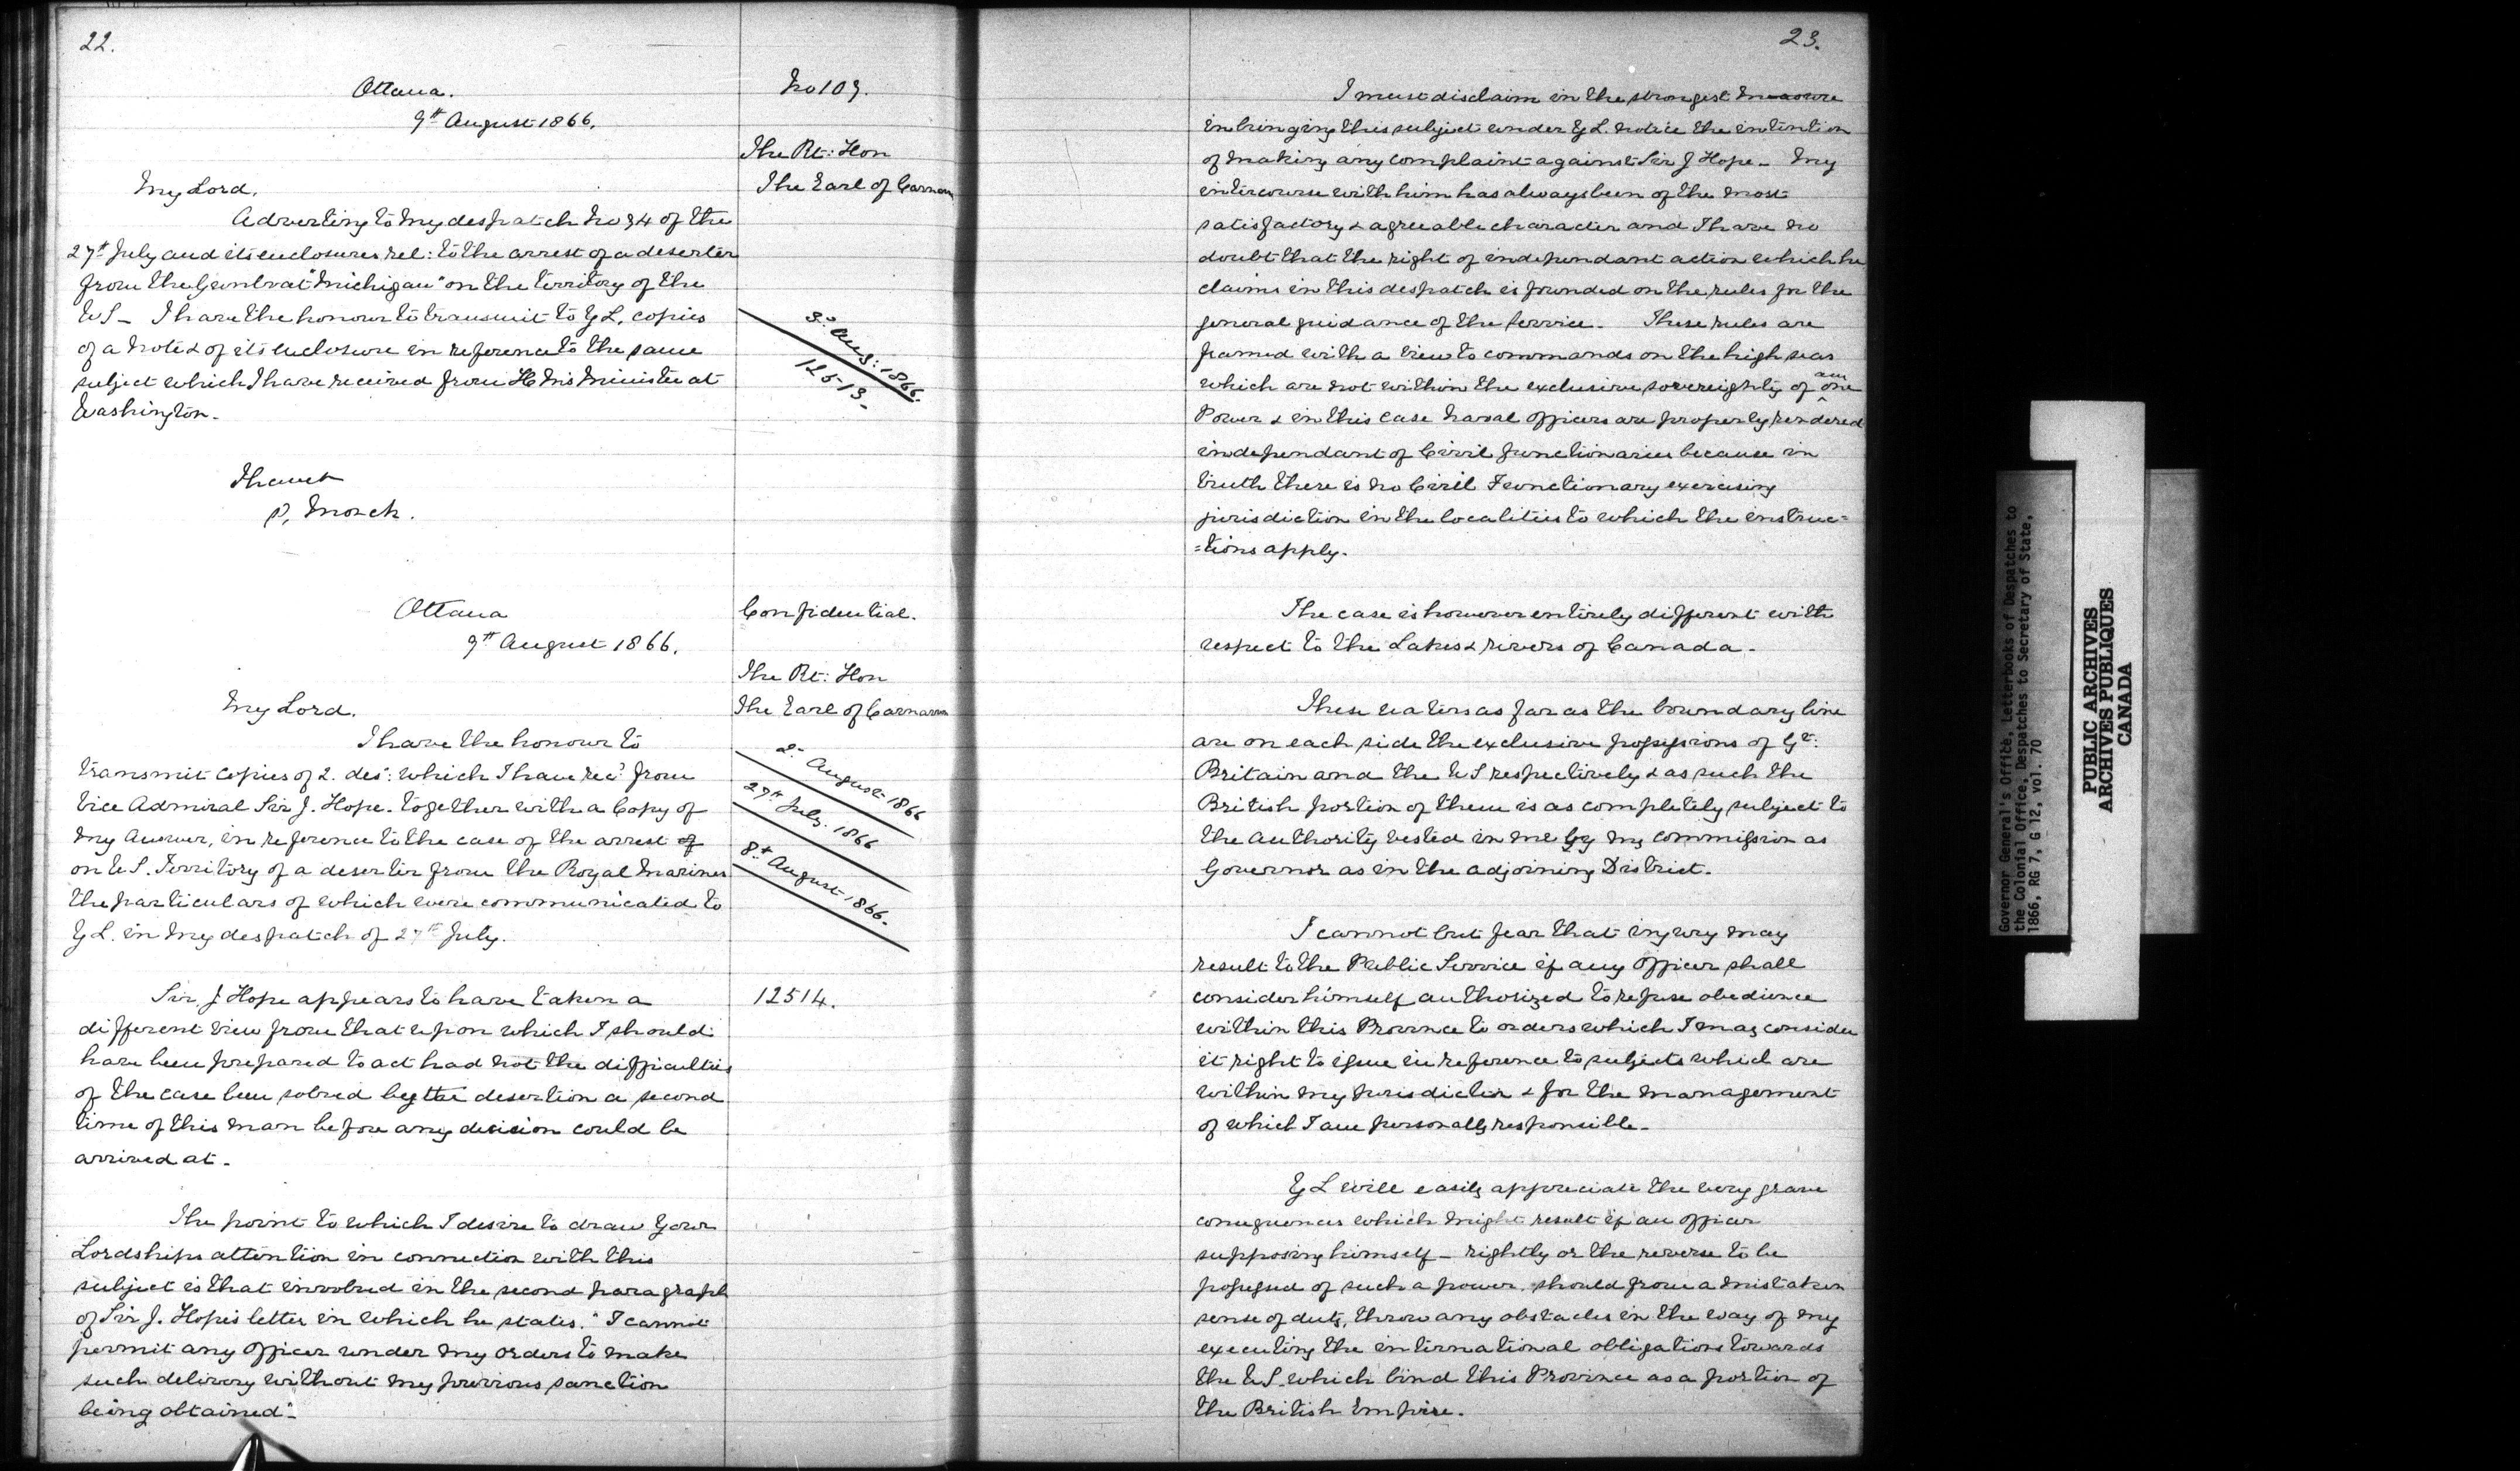 22.
Ottawa.
9th August 1866.
No 109.
The Rt: Hon
The Earl of Carnarvon
My Lord,
Adverting to my despatch No 94 of the
27th July and its enclosures rel: to the arrest of a deserter
from the Gunboat "Michigan" on the territory of the
US — I have the honour to transmit to Y L. copies
of a note & of its enclosure in reference to the same
subject which I have received from H M's Minister at
Washington.
3d Aug: 1866.
12513_
I have &
P, Monck.
Ottawa
9th August 1866.
Confidential.
The Rt: Hon
The Earl of Carnarvon
My Lord.
I have the honour to
transmit copies of 2. des: which I have recd from
Vice Admiral Sir J. Hope. together with a Copy of
my Answer, in reference to the case of the arrest of
on U S. Territory of a deserter from the Royal Marines
the particulars of which were communicated to
Y L. in my despatch of 27th July.
2d August 1866
27th July. 1866
8th August 1866.
Sir J Hope appears to have taken a
12514.
different view from that upon which I should
have been prepared to act had not the difficulties
of the case been solved by the desertion a second
time of this man before any decision could be
arrived at.
The point to which I desire to draw Your
Lordships attention in connection with this
subject is that involved in the second paragraph
of Sir J. Hope's letter in which he states. "I cannot
permit any Officer under my orders to make
such delivery without my previous sanction
being obtained"_
23.
I must disclaim in the strongest measure
in bringing this subject under Y L. notice the intention
of making any complaint against Sir J Hope_ My
intercourse with him has always been of the most
satisfactory & agreeable character and I have no
doubt that the right of independant action which he
claims in this despatch is founded on the rules for the
general guidance of the Service. These rules are
framed with a view to commands on the high seas
which are not within the exclusive sovereignty of any one
Power & in this case Naval Officers are properly rendered
independant of Civil functionaries because in
truth there is no Civil Functionary exercising
jurisdiction in the localities to which the instruc=
=tions apply.
The case is however entirely different with
respect to the Lakes & rivers of Canada.
These waters as far as the boundary line
are on each side the exclusive possessions of Gt:
Britain and the U S respectively & as such the
British portion of them is as completely subject to
the authority vested in me by my commission as
Governor as in the adjoining District.
I cannot but fear that injury may
result to the Public Service if any Officer shall
consider himself authorized to refuse obedience
within this Province to orders which I may consider
it right to issue in reference to subjects which are
within my jurisdiction & for the management
of which I am personally responsible.
Y L will easily appreciate the very grave
consequences which might result if an officer
supposing himself _ rightly or the reverse to be
possessed of such a power. should from a mistaken
sense of duty, throw any obstacles in the way of my
executing the international obligations towards
the U S. which bind this Province as a portion of
the British Empire.
Governor General's Office, Letterbooks of Despatches to
the Colonial Office, Despatches to Secretary of State,
1866, RG 7, G 12, vol. 70
PUBLIC ARCHIVES
ARCHIVES PUBLIQUES
CANADA